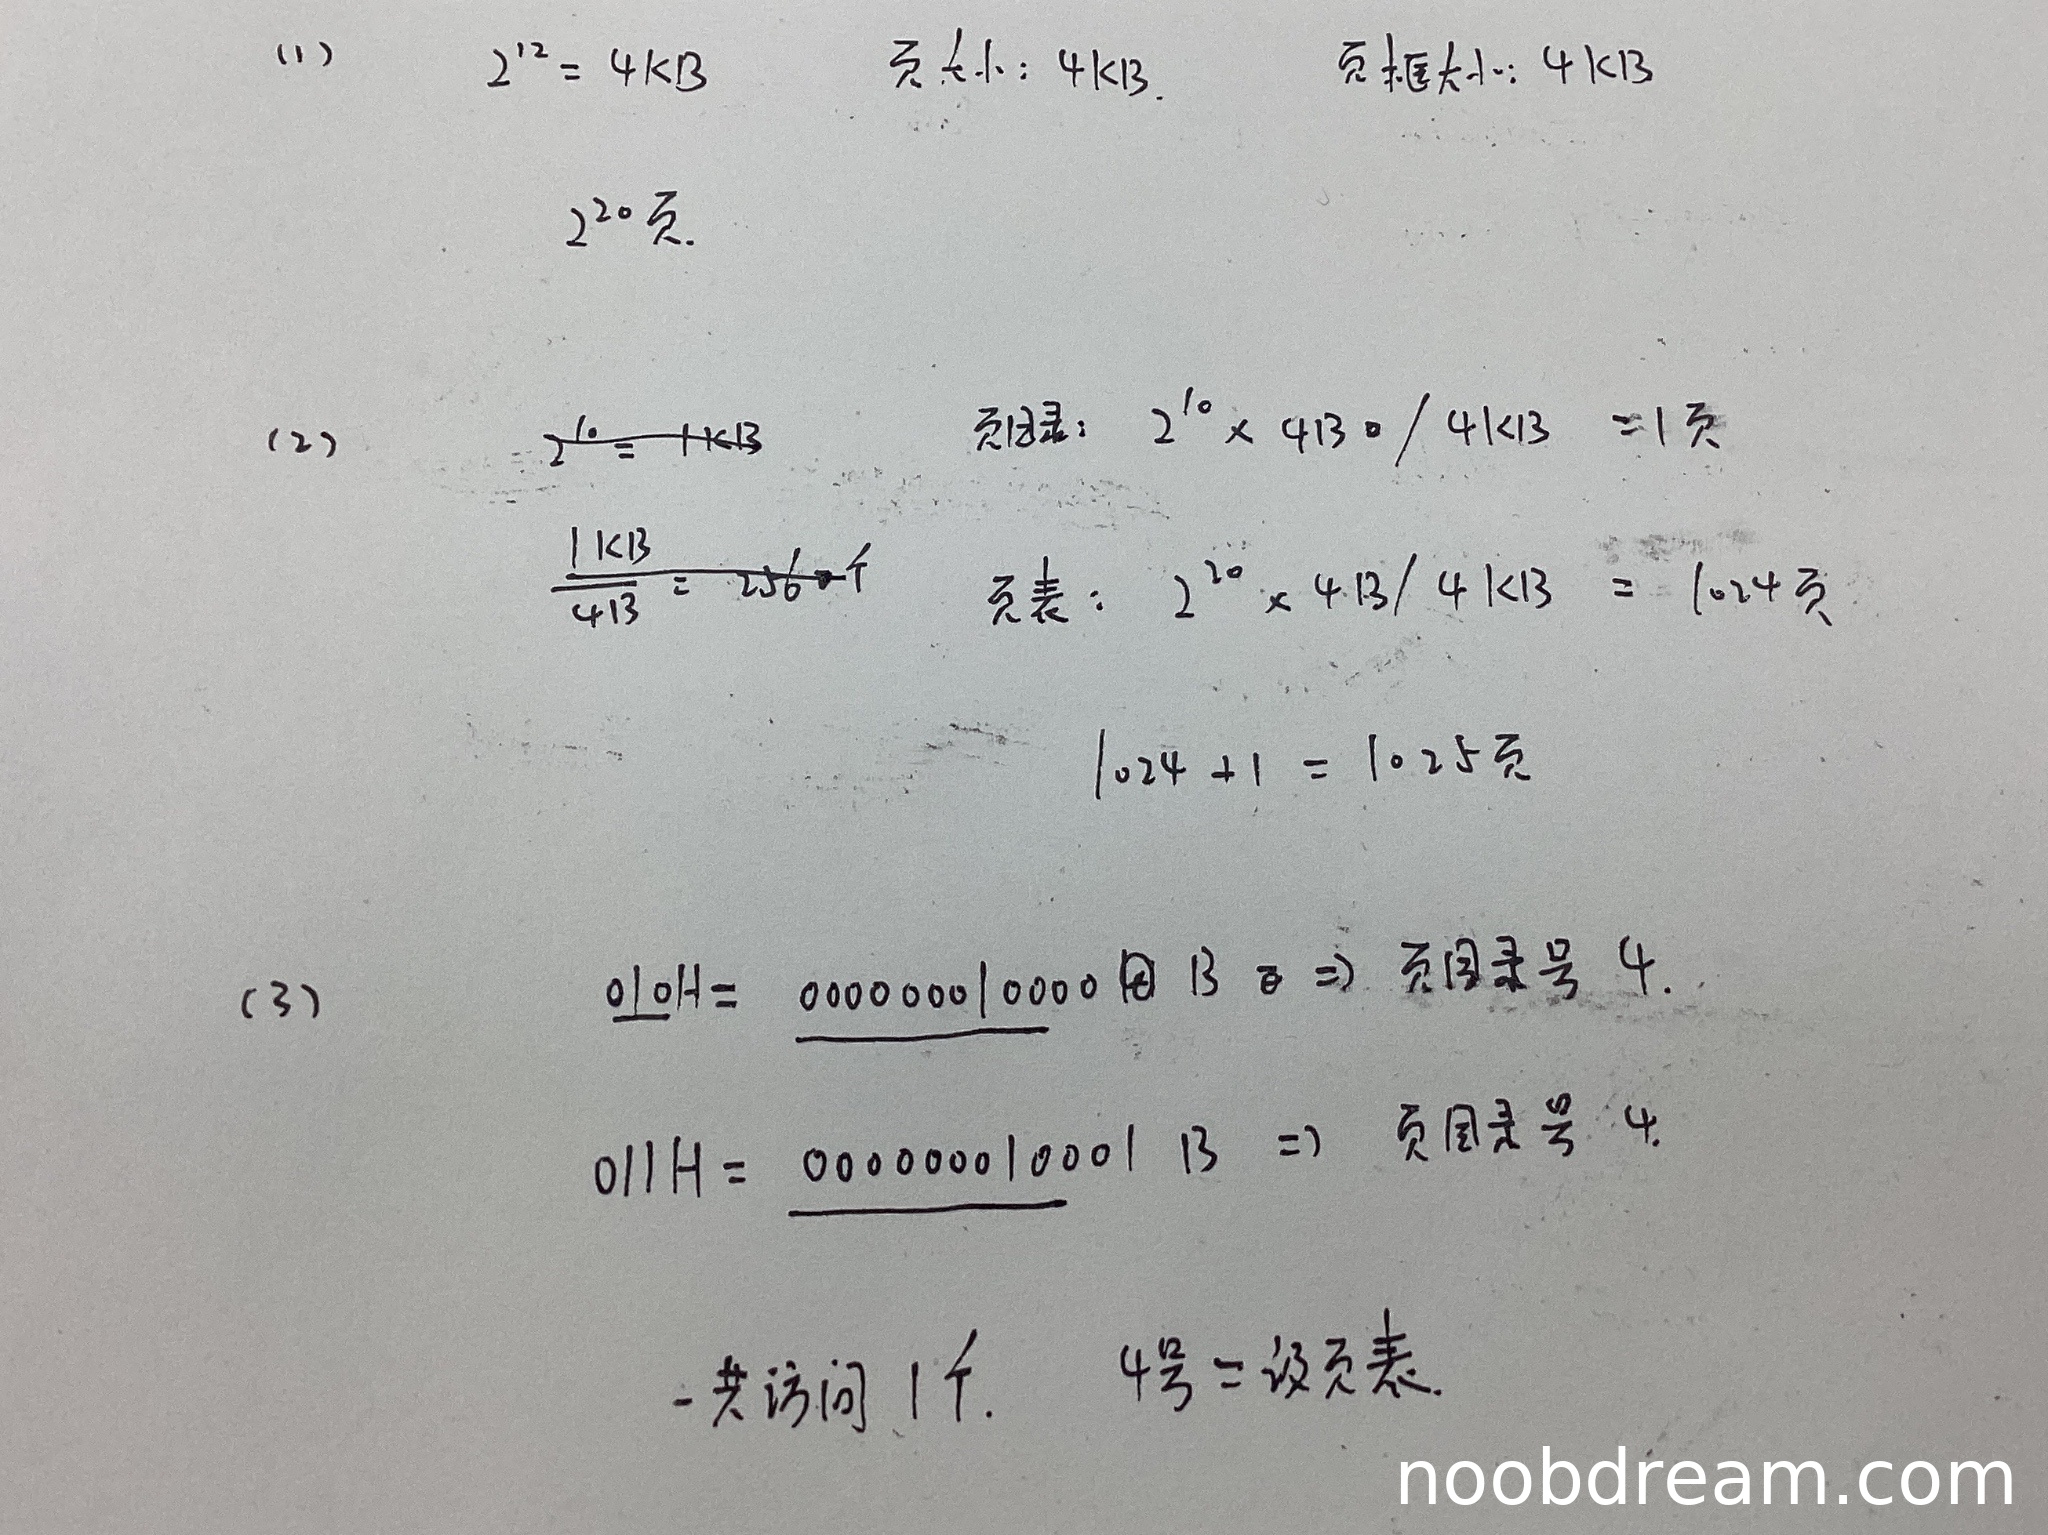 (1) 2^12 = 4KB 页大小: 4KB. 页框大小: 4KB
2^20 页.
(2) 2^10 = 1KB 页目录: 2^10 × 4B / 4KB = 1页
1KB/4B = 256个 页表: 2^20 × 4B / 4KB = 1024页
1024 + 1 = 1025页
(3) 010H = 000000010000 B => 页目录号 4.
011H = 000000010001 B => 页目录号 4.
一共访问 1个. 4号二级页表.
noobdream.com